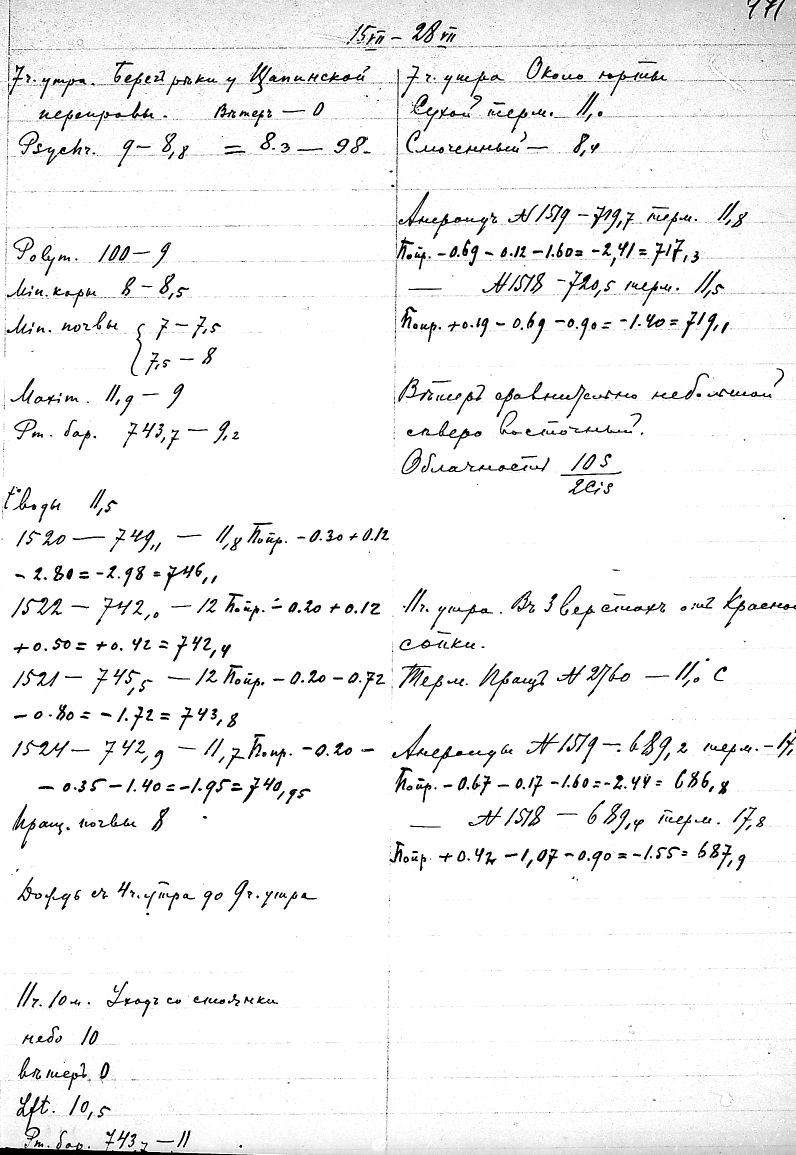 471
15 VII – 28 VII
7 ч. утра. Берегъ рѣки у Щапинской
переправы. Вѣтеръ — 0
Psychr. 9 – 8,8 = 8.3 — 98.
Polym. 100 – 9
Min. коры 8 – 8,5
Min. почвы { 7 – 7,5
7,5 – 8
Maxim. 11,9 – 9
Рт. бар. 743,7 – 9,2
t° воды 11,5
1520 — 749,1 — 11,8 Попр. – 0.30 + 0.12
– 2.80 = – 2.98 = 746,1
1522 — 742,0 — 12 Попр. – 0.20 + 0.12
+ 0.50 = + 0.42 = 742,4
1521 — 745,5 — 12 Попр. – 0.20 – 0.72
– 0.80 = – 1.72 = 743,8
1524 — 742,9 — 11,7 Попр. – 0.20 –
– 0.35 – 1.40 = – 1.95 = 740,95
Пращ. почвы 8
Дождь съ 4 ч. утра до 9 ч. утра
11 ч. 10 м. Уходъ со стоянки
небо 10
вѣтеръ 0
Lft. 10,5
Рт. бар. 743,7 — 11
7 ч. утра Около юрты
Сухой терм. 11,0
Смоченный — 8,4
Анероидъ N 1519 – 719,7 терм. 11,8
Попр. – 0.69 – 0.12 – 1.60 = – 2,41 = 717,3
— N 1518 – 720,5 терм. 11,5
Попр. + 0.19 – 0.69 – 0.90 = – 1.40 = 719,1
Вѣтеръ сравнительно небольшой
сѣверо восточный.
Облачность 10 S
2 Cis
11 ч. утра. Въ 3 верстахъ отъ Красной
сопки.
Терм. Пращъ N 2760 — 11,0° С
Анероиды N 1519 — 689,2 терм. –
Попр. – 0.67 – 0.17 – 1.60 = – 2.44 = 686,8
— N 1518 — 689,4 терм. 17,8
Попр. + 0.42 – 1,07 – 0.90 = – 1.55 = 687,9